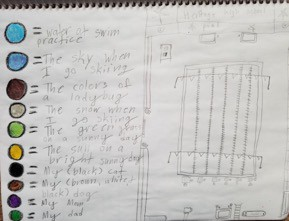 = water at swim
practice
= The sky when
I go skiing
= The colors of
a ladybug
= The snow when
I go skiing
= The green
on a sunny day
= The sun on a
bright sunny day
= My (black) cat
= My (brown, white,
black) dog
= My Mom
= My dad